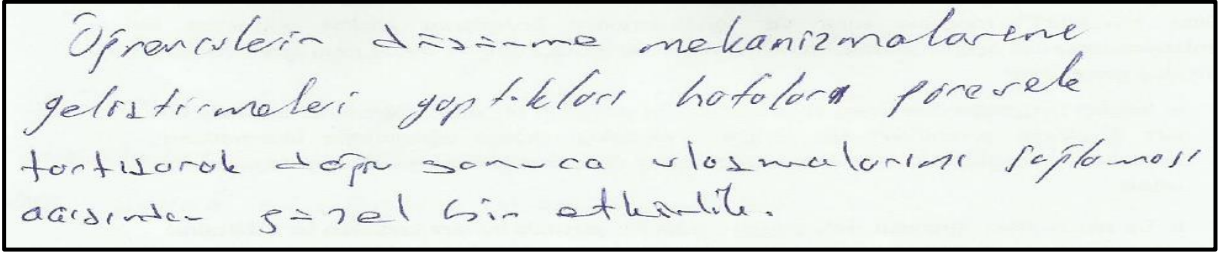 Öğrencilerin düşünme mekanizmalarını
geliştirmeleri yaptıkları hataları görerek
tartışarak doğru sonuca ulaşmalarını sağlaması
açısından güzel bir etkinlik.